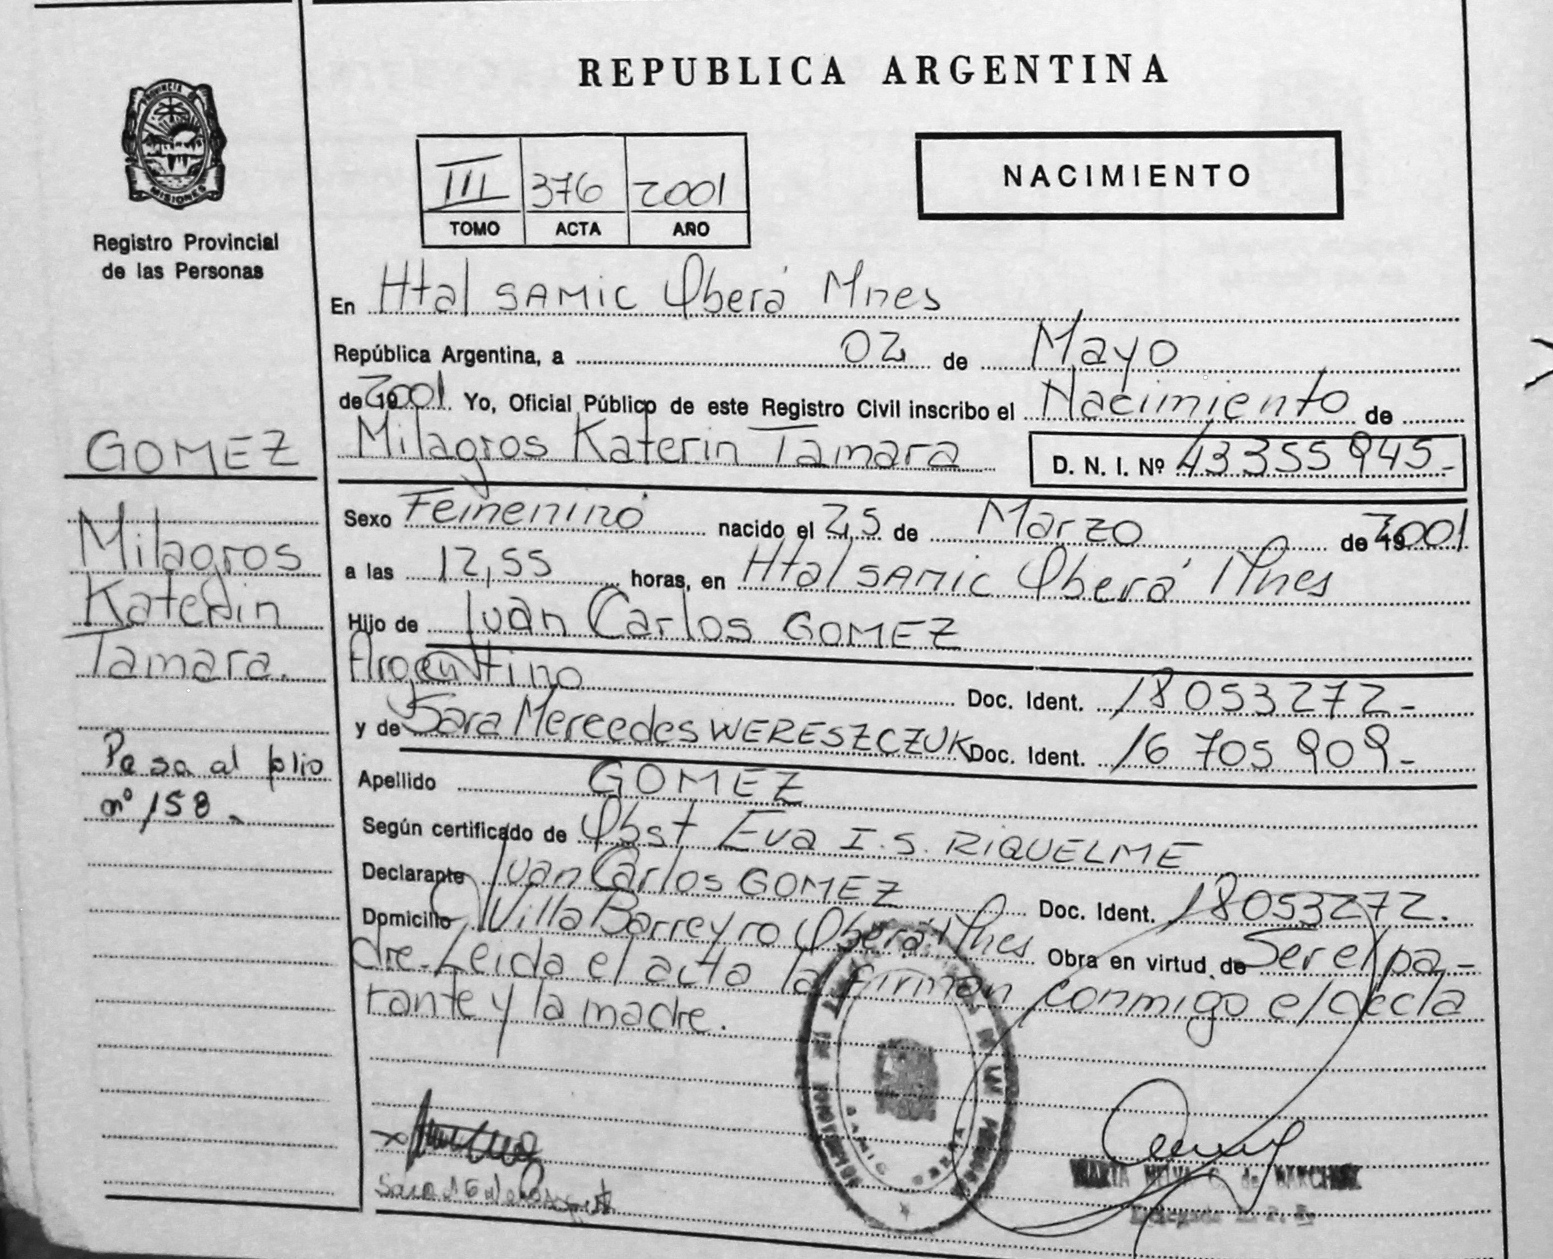 REPUBLICA ARGENTINA
PROVINCIA DE
MISIONES
Registro Provincial
de las Personas
III 376 2001
TOMO ACTA AÑO
NACIMIENTO
En Htal SAMIC Oberá Mnes
República Argentina, a 02 de Mayo
de 2001 Yo, Oficial Público de este Registro Civil inscribo el Nacimiento de
Milagros Katerin Tamara D. N. I. Nº 43355945-
Sexo Femenino nacido el 25 de Marzo de 2001
a las 12,55 horas, en Htal SAMIC Oberá Mnes
Hijo de Juan Carlos GOMEZ
Argentino Doc. Ident. 18053272-
y de Sara Mercedes WERESZCZUK Doc. Ident. 16705909-
Apellido GOMEZ
Según certificado de Obst Eva I.S. RIQUELME
Declarante Juan Carlos GOMEZ Doc. Ident. 18053272.
Domicilio Villa Barreyro Oberá Mnes Obra en virtud de Ser el pa-
dre. Leida el acta la firman conmigo el decla
rante y la madre.
GOMEZ
Milagros
Katerin
Tamara.
Pasa al folio
nº 158.
SAMIC OBERA
MARTA de SANCHEZ
Delegada R. P.